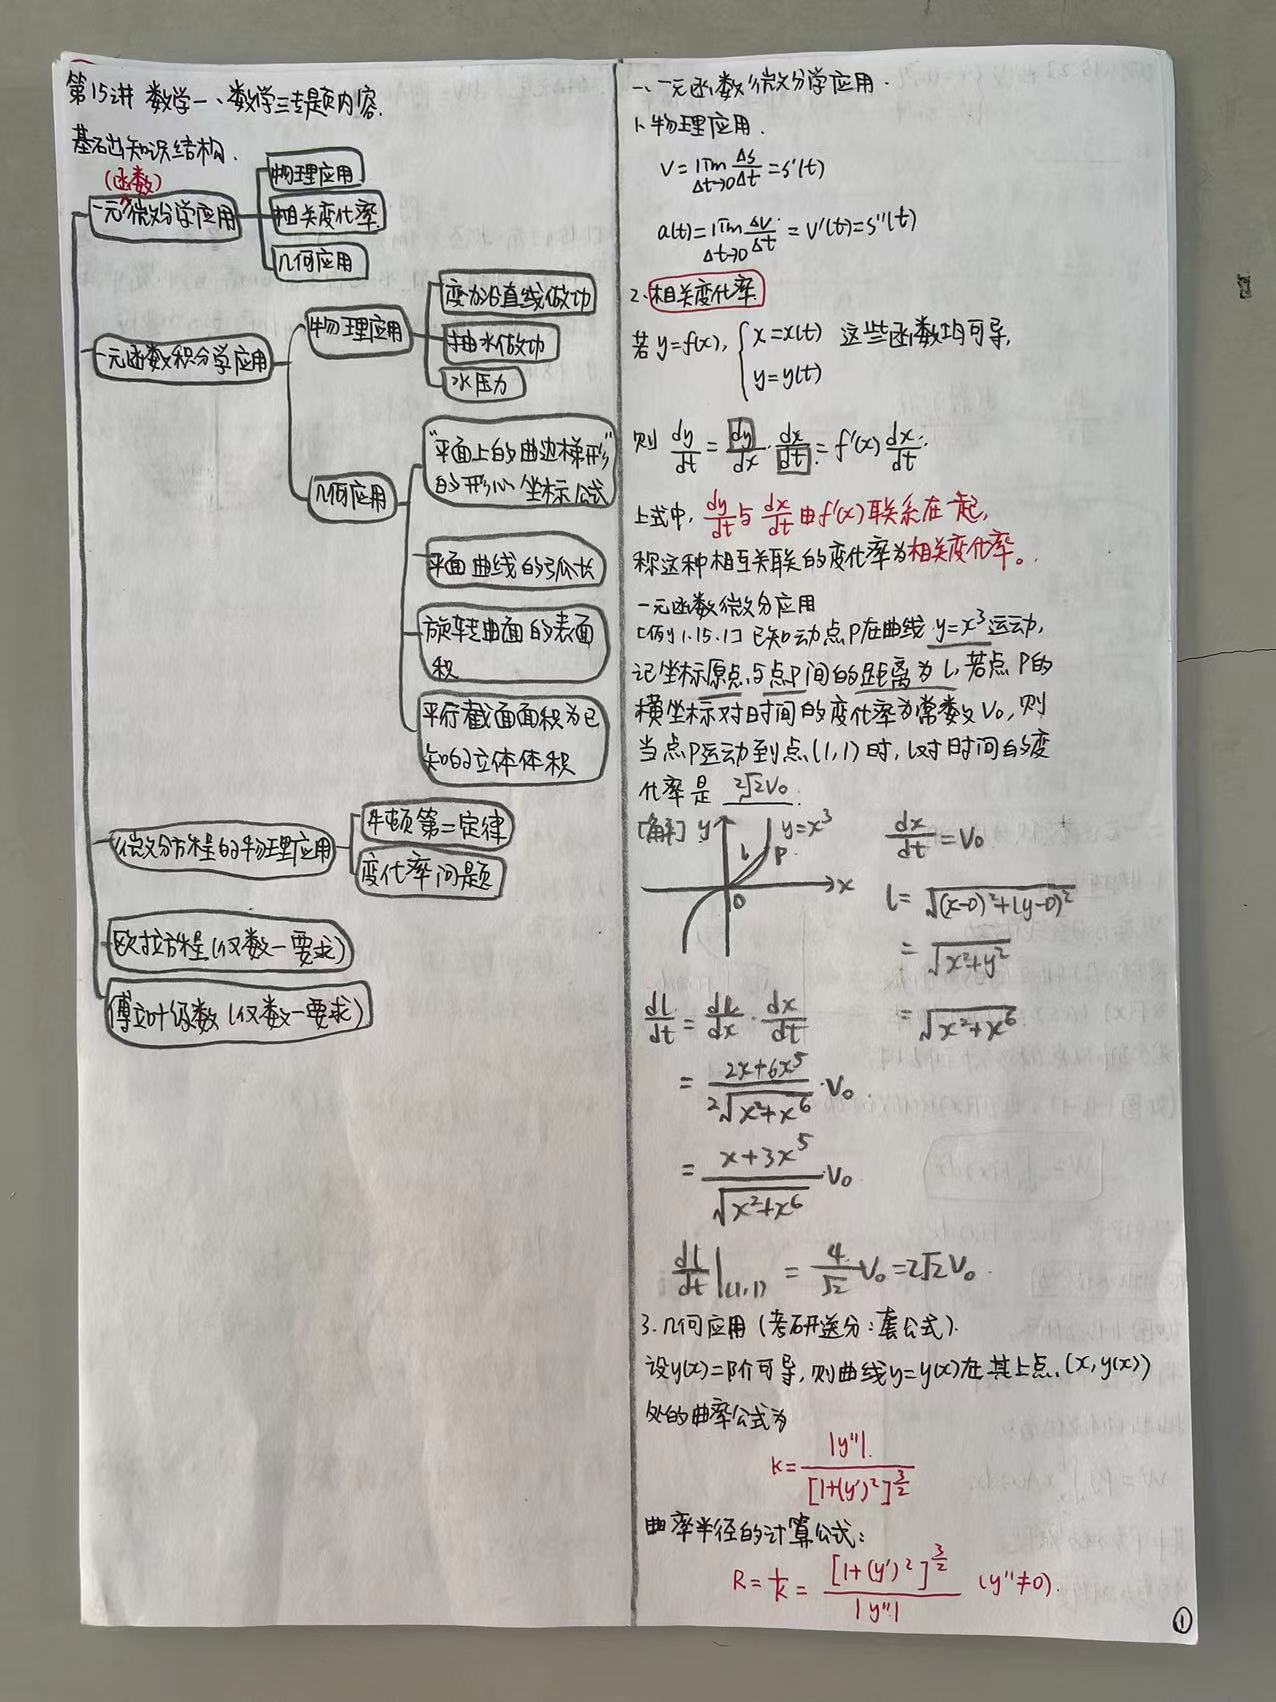 第15讲 数学一、数学三专题内容.
基础知识结构.
(函数)
一元微分学应用
物理应用
相关变化率
几何应用
一元函数积分学应用
物理应用
变力沿直线做功
抽水做功
水压力
几何应用
"平面上的曲边梯形"
的形心坐标公式
平面曲线的弧长
旋转曲面的表面
积
平行截面面积为已
知的立体体积
微分方程的物理应用
牛顿第二定律
变化率问题
欧拉方程(仅数一要求)
傅立叶级数(仅数一要求)
一、一元函数微分学应用.
1、物理应用.
V=lim Δs/Δt=s'(t)
Δt→0
a(t)=lim Δv/Δt=V'(t)=s''(t)
Δt→0
2、相关变化率
若y=f(x), { x=x(t) 这些函数均可导,
y=y(t)
则 dy/dt = dy/dx · dx/dt = f'(x) dx/dt.
上式中, dy/dt 与 dx/dt 由f'(x)联系在一起,
称这种相互关联的变化率为相关变化率。
一元函数微分应用
[例1.15.1] 已知动点P在曲线y=x³运动,
记坐标原点与点P间的距离为l,若点P的
横坐标对时间的变化率为常数V₀,则
当点P运动到点(1,1)时,l对时间的变
化率是 2√2V₀.
[解] y l y=x³ P x O
dx/dt=V₀
l=√((x-0)²+(y-0)²)
=√(x²+y²)
=√(x²+x⁶)
dl/dt = dl/dx · dx/dt
= (2x+6x⁵)/(2√(x²+x⁶)) ·V₀.
= (x+3x⁵)/√(x²+x⁶) ·V₀
dl/dt|(1,1) = 4/√2 V₀=2√2V₀.
3.几何应用(考研送分:套公式).
设y(x)二阶可导,则曲线y=y(x)在其上点(x,y(x))
处的曲率公式为
K=|y''|/[1+(y')²]^(3/2)
曲率半径的计算公式:
R=1/K=[1+(y')²]^(3/2)/|y''| (y''≠0).
①